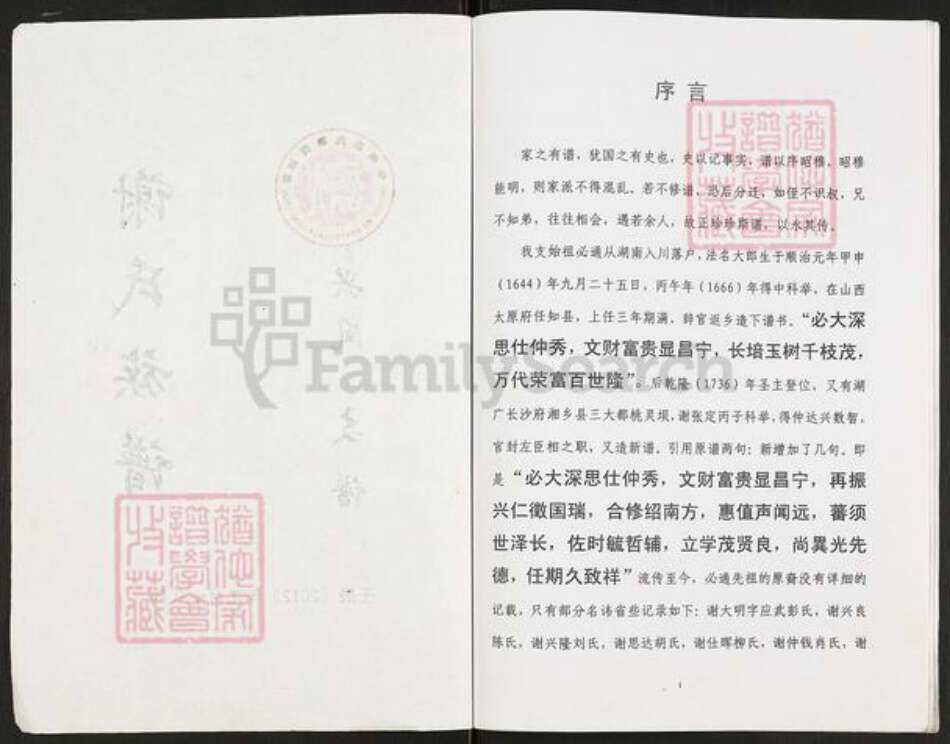 序言
家之有谱，犹国之有史也，史以记事实，谱以序昭穆，昭穆
能明，则家派不得混乱，若不修谱，恐后分迁，如侄不识叔，兄
不知弟，往往相会，遇若余人，故正珍珍斯谱，以永其传。
我支始祖必通从湖南入川落户，法名大郎生于顺治元年甲申
（1644）年九月二十五日，丙午年（1666）年得中科举，在山西
太原府任知县，上任三年期满，辞官返乡造下谱书。“必大深
思仕仲秀，文财富贵显昌宁，长培玉树千枝茂，
万代荣富百世隆”。后乾隆（1736）年圣主登位，又有湖
广长沙府湘乡县三大都桃灵坝，谢张定丙子科举，得仲达兴数智，
官封左臣相之职，又造新谱，引用原谱两句：新增加了几句，即
是“必大深思仕仲秀，文财富贵显昌宁，再振
兴仁徵国瑞，合修绍南方，惠值声闻远，蕃须
世泽长，佐时毓哲辅，立学茂贤良，尚異光先
德，任期久致祥”流传至今，必通先祖的原裔没有详细的
记载，只有部分名讳省些记录如下：谢大明字应武彭氏，谢兴良
陈氏，谢兴隆刘氏，谢思达胡氏，谢仕晖柳氏，谢仲钱肖氏，谢
1
FamilySearch
谢氏族谱